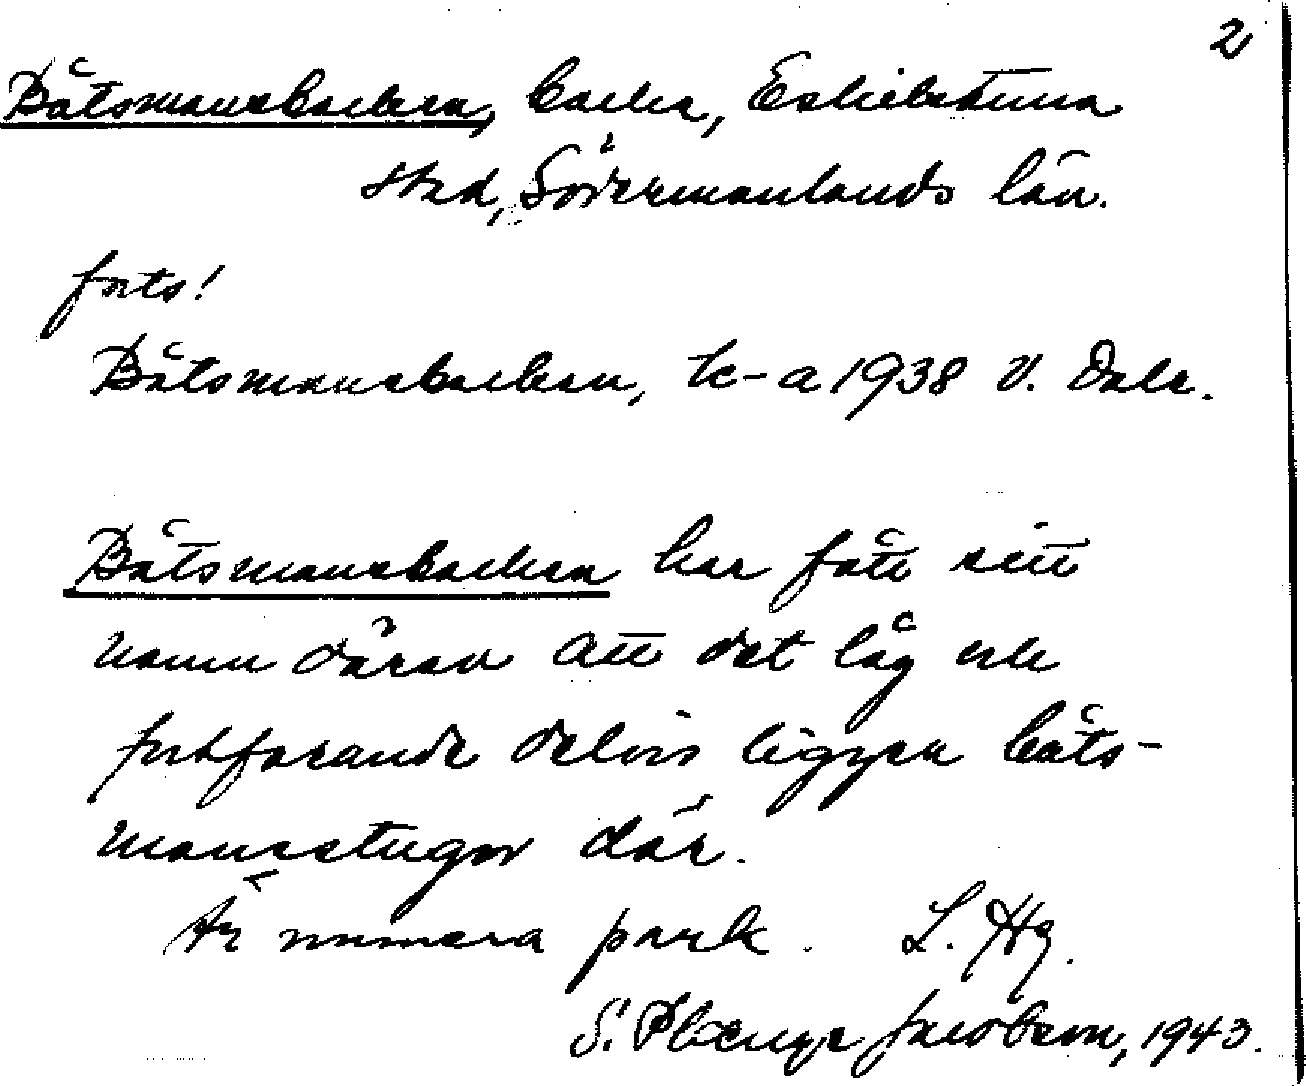 2
Båtsmansbacken, backe, Eskilstuna
stad, Södermanlands län.
forts!
Båtsmansbacken, te-a 1938 V. Dalr.
Båtsmansbacken har fått sitt
namn därav att det låg och
fortfarande delvis ligger båts-
mansstugor där.
Är numera park. L. Hg.
S. Jacobson, 1943.